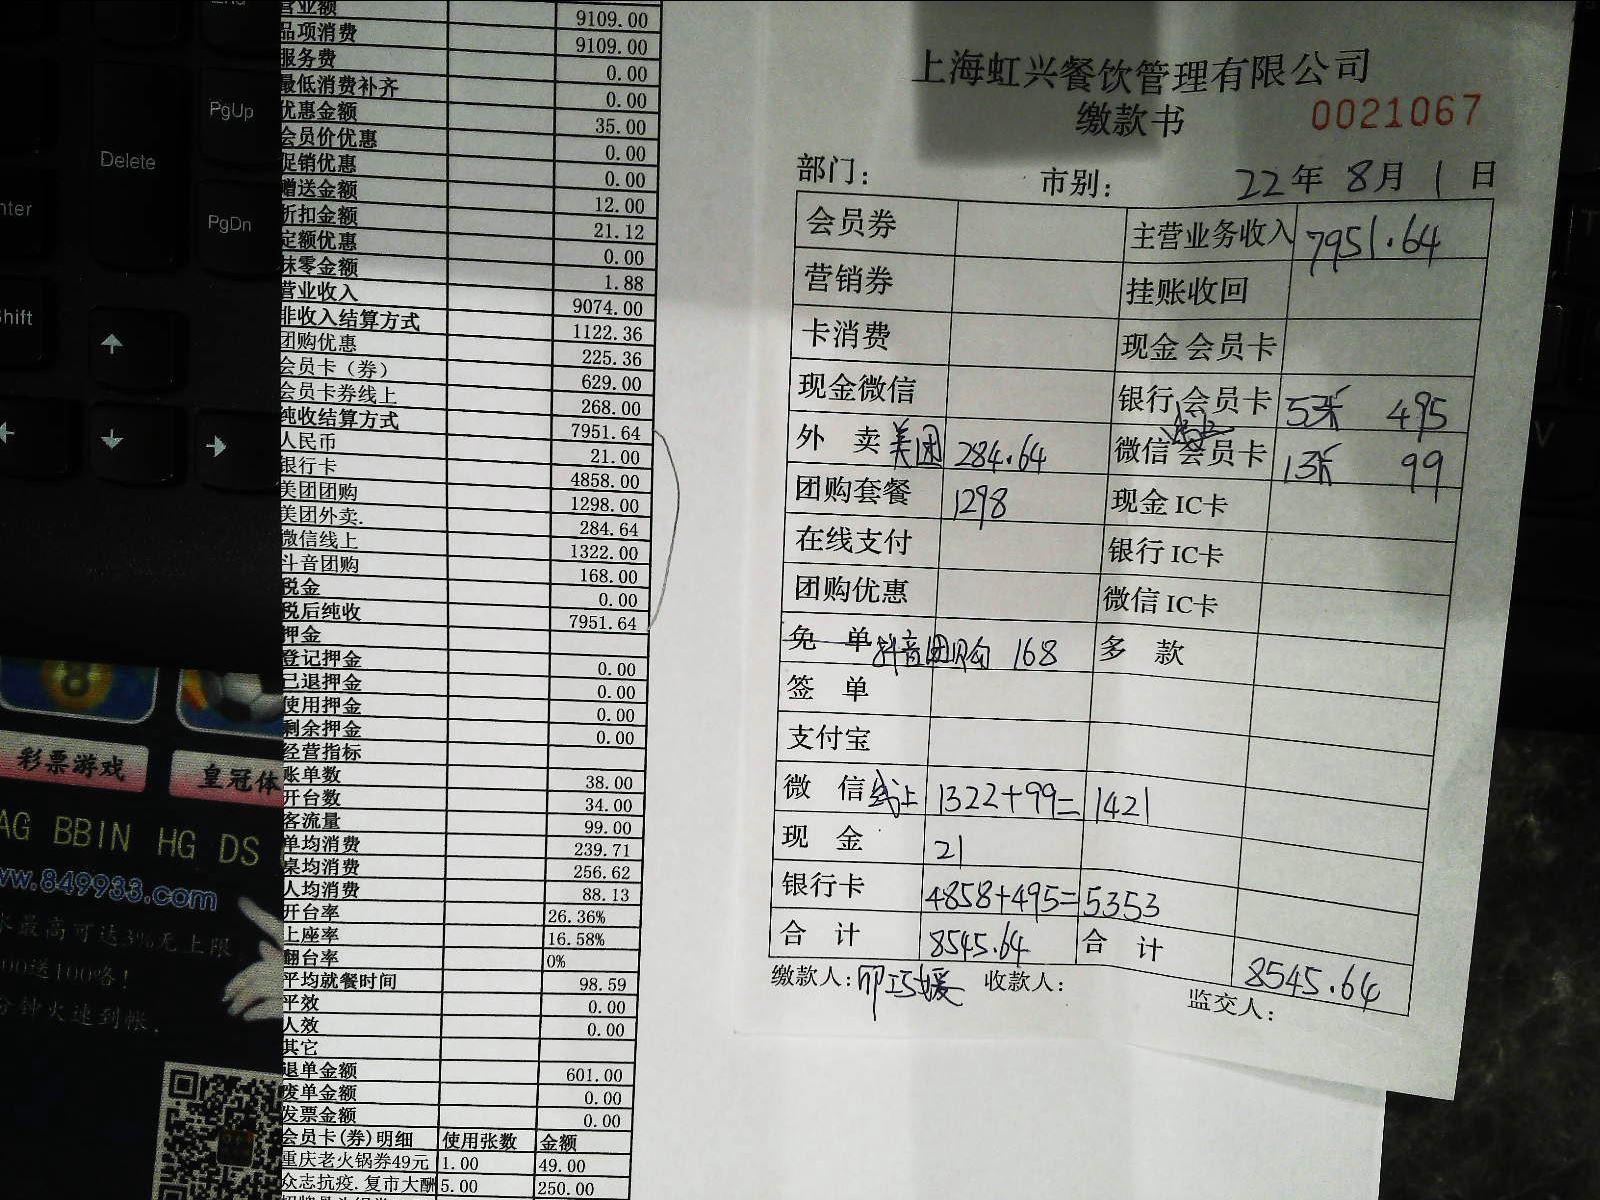 Delete
PgUp
PgDn
Shift
彩票游戏
皇冠体
AG BBIN HG DS
www.849933.com
最高可达3%无上限
00送100咯!
分钟火速到帐.
营业额 9109.00
品项消费 9109.00
服务费 0.00
最低消费补齐 0.00
优惠金额 35.00
会员价优惠 0.00
促销优惠 0.00
赠送金额 12.00
折扣金额 21.12
定额优惠 0.00
抹零金额 1.88
营业收入 9074.00
非收入结算方式 1122.36
团购优惠 225.36
会员卡（券） 629.00
会员卡券线上 268.00
纯收结算方式 7951.64
人民币 21.00
银行卡 4858.00
美团团购 1298.00
美团外卖. 284.64
微信线上 1322.00
斗音团购 168.00
税金 0.00
税后纯收 7951.64
押金
登记押金 0.00
已退押金 0.00
使用押金 0.00
剩余押金 0.00
经营指标
账单数 38.00
开台数 34.00
客流量 99.00
单均消费 239.71
桌均消费 256.62
人均消费 88.13
开台率 26.36%
上座率 16.58%
翻台率 0%
平均就餐时间 98.59
平效 0.00
人效 0.00
其它
退单金额 601.00
废单金额 0.00
发票金额 0.00
会员卡(券)明细 使用张数 金额
重庆老火锅券49元 1.00 49.00
众志抗疫.复市大酬 5.00 250.00
上海虹兴餐饮管理有限公司
缴款书 0021067
部门: 市别: 22年 8月 1日
会员券 主营业务收入 7951.64
营销券 挂账收回
卡消费 现金 会员卡
现金微信 银行 会员卡 5张 495
外 卖 美团 284.64 微信 线上 会员卡 1张 99
团购套餐 1298 现金 IC卡
在线支付 银行 IC卡
团购优惠 微信 IC卡
免 单 抖音团购 168 多 款
签 单
支付宝
微 信 线上 1322+99=1421
现 金 21
银行卡 4858+495=5353
合 计 8545.64 合 计 8545.64
缴款人: 收款人: 监交人: